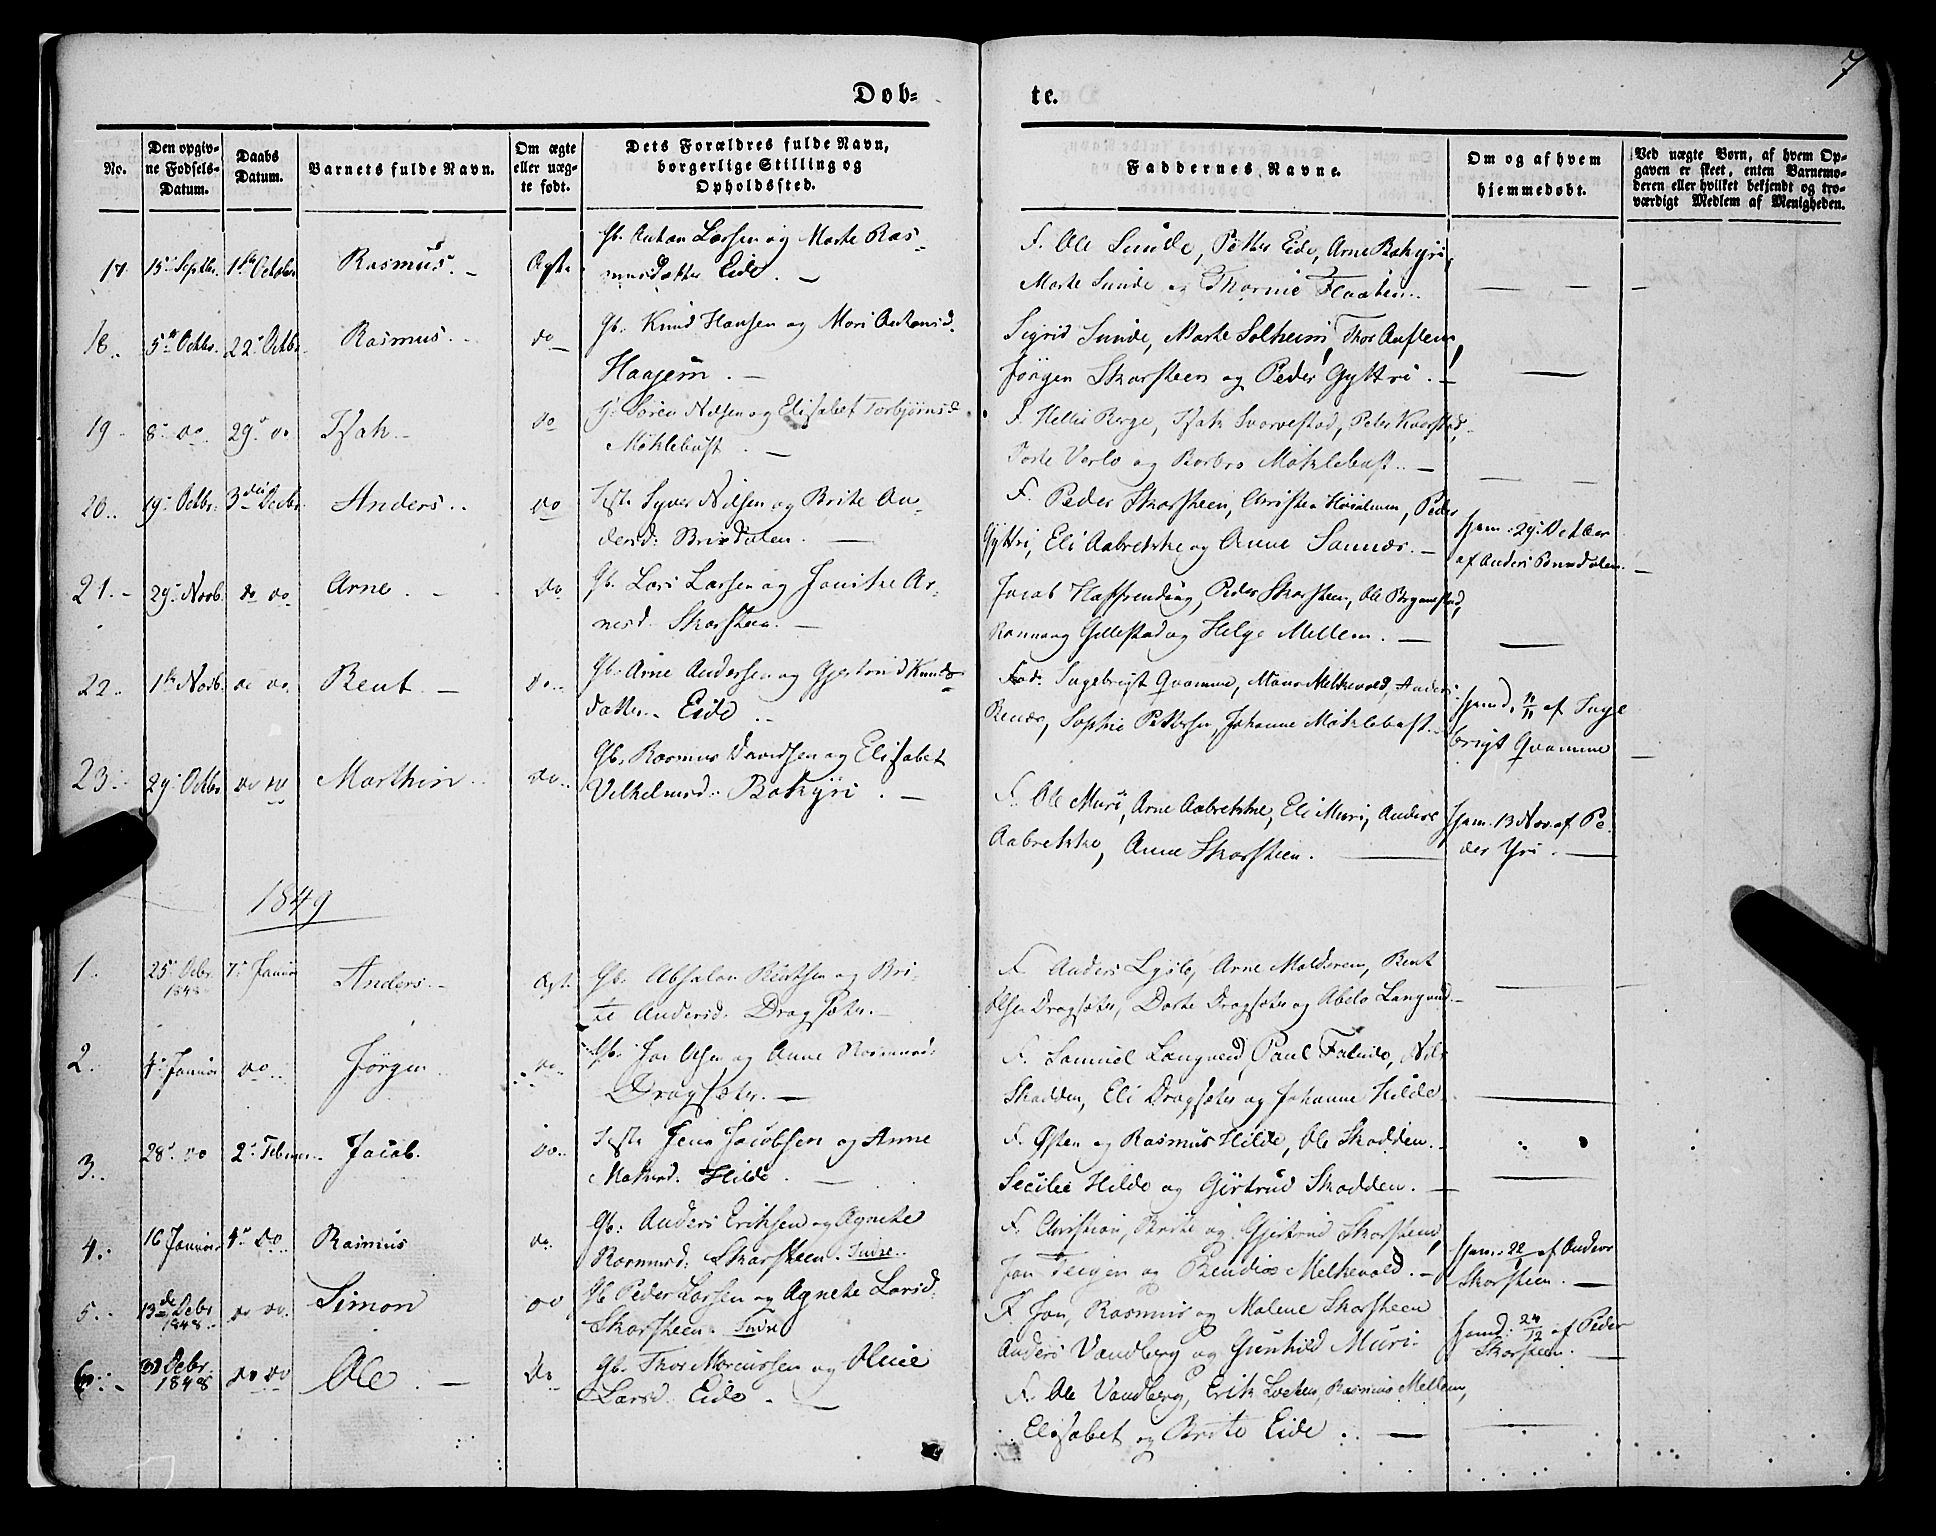 7
Døb=
te.
No.
Den opgiv-
ne Fødsels-
Datum.
Daabs
Datum.
Barnets fulde Navn.
Om ægte
eller uæg-
te født.
Dets Forældres fulde Navn,
borgerlige Stilling og
Opholdssted.
Faddernes Navne.
Om og af hvem
hjemmedøbt.
Ved uægte Børn, af hvem Op-
gaven er skeet, enten Barnemo-
deren eller hvilket bekjendt og tro-
værdigt Medlem af Menigheden.
17. 15. Septbr. 1ste October Rasmus. Ægte
Gb. Anton Larsen og Marte Ras-
musdatter Eide.
F. Ole Sunde, Petter Eide, Arne Bakyri,
Marte Sunde og Flaaten.
18. 5te Octbr. 22. Octbr. Rasmus. do
Gb. Knud Hansen og Mari Antonsd.
Haajem.
Sigrid Sunde, Marte Solheim, Thor Auflem,
Jörgen Skarsteen og Peder Gyttri.
19. 8. do. 29. do Isak. do
Sören Nilsen og Elisabet Torbjørnsd.
Möklebust.
F. Hellie Berge, Isak Svarvestad, Peter Kvarstad,
Varlo og Barbro Möklebust.
20. 19. Octbr. 3die Decbr. Anders. do
Syver Nilsen og Brite An-
dersd: Brisdalen.
F. Peder Skarsteen, Christen, Peder
Gyttri, Eli Aabrekke og Anne Sannæs.
Hjem: 29. Octber
af Anders Brisdalen.
21. 29. Novb. do do Arne. Do
Gb. Lars Larsen og Jonikke Ar-
nesd. Skarsteen.
Jacob Haffrending, Peder Skarsteen, Ole Brynestad,
Rannaug Gillestad og Helge Mellem.
22. 1ste Novb. do do. Bent. Do.
Gb. Arne Andersen og Gjertrud Knuds-
datter. Eide.
Fad: Ingebrigt Qvamme, Mons Melkevold, Anders
Renæs, Sophie Pettersen, Johanne Möklebust.
Hjemd. 11/11 af Inge
brigt Qvamme
23. 29. Octbr. do do Marthin. do.
Gb. Rasmus Davidsen og Elisabet
Vilhelmsd: Bakyri.
F. Ole Muri, Arne Aabrekke, Eli Muri, Anders
Aabrekke, Anne Skarsteen.
Hjem. 13 Nov. af Pe-
der Yri.
1849
1. 25. Debr. 7. Januar Anders. Ægt.
1848.
Gb. Absalon Bentsen og Bri-
te Andersd. Dragsæter.
F. Anders Lyslo, Arne Malderen, Bent
Olsen Dragsæter, Dorte Dragsæter og Abelo Langved.
2. 4. Januar do. Jørgen. do.
Gb. Jon Olsen og Anne Rasmusd:
Dragsæter.
F. Samuel Langved, Paul Faleide, Nils
Skadden, Eli Dragsæter og Johanne Hilde
3. 28. do 2. Februar Jacob. do.
Jens Jacobsen og Anne
Hilde.
F. Østen og Rasmus Hilde, Ole Skadden.
Secilie Hilde og Gjertrud Skadden.
4. 16 Januar 4. do Rasmus do.
Gb: Anders Eriksen og Agnete
Rasmusd: Skarsteen. Indre.
F. Christian, Brite og Gjertrud Skarsteen,
Jon Teigen og Bendix Melkevold.
Hjem: 22/1 af Anders
Skarsteen.
5. 13de Debr. do do. Simon do
1848.
Gb Peder Larsen og Agnete Larsd.
Skarsteen. Indre
F. Jon, Rasmus og Malene Skarsteen
Anders Vandberg og Gunhild Muri.
Hjemd: 24/12 af Peder
Skarsteen.
6. 30 Debr. do do Ole. Do
1848
Gb. Thor Marcussen og Oline
Larsd. Eide.
F. Ole Vandberg, Erik Loeken, Rasmus Mellem,
Elisabet og Brite Eide.